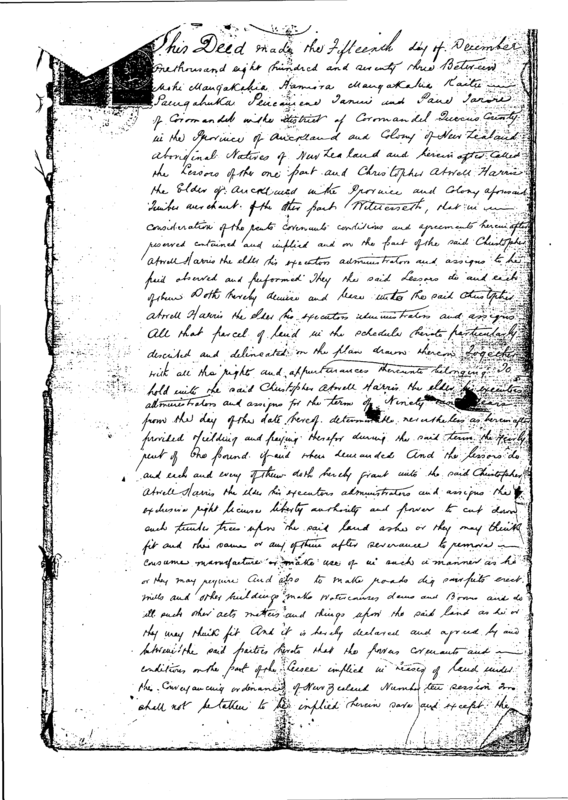 This Deed made the Fifteenth day of December
One thousand eight hundred and seventy three Between
Mangakahia Hamiora Mangakahia
and
of Coromandel in the District of Coromandel Queens County
in the Province of Auckland and Colony of New Zealand
Aboriginal Natives of New Zealand and herein after called
the Lessors of the one part and Christopher Atwell Harris
the Elder of Auckland in the Province and Colony aforesaid
Timber merchant of the other part Witnesseth, that in
consideration of the rents covenants conditions and agreements herein after
reserved contained and implied and on the part of the said Christopher
Atwell Harris the elder his executors administrators and assigns to be
paid observed and performed They the said Lessors do and each
of them Doth hereby demise and lease unto the said Christopher
Atwell Harris the elder his executors administrators and assigns
All that parcel of land in the schedule hereto particularly
described and delineated on the plan drawn thereon Together
with all the rights and appurtenances thereunto belonging To
hold unto the said Christopher Atwell Harris the elder his executors
administrators and assigns for the term of Ninety years
from the day of the date hereof determinable nevertheless as herein after
provided yielding and paying therefor during the said term the yearly
rent of One pound if and when demanded And the lessors do
and each and every of them doth hereby grant unto the said Christopher
Atwell Harris the elder his executors administrators and assigns the
exclusive right license liberty authority and power to cut down
such timber trees upon the said land as he or they may think
fit and the same or any of them after severance to remove
consume manufacture or make use of in such a manner as he
or they may require And also to make roads dig sawpits erect
mills and other buildings make watercourses dams and Booms and do
all such other acts matters and things upon the said land as he or
they may think fit And it is hereby declared and agreed by and
between the said parties hereto that the powers covenants and
conditions on the part of the lessee implied in leases of land under
the Conveyancing ordinance of New Zealand Number ten session two
shall not be taken to be implied herein save and except the